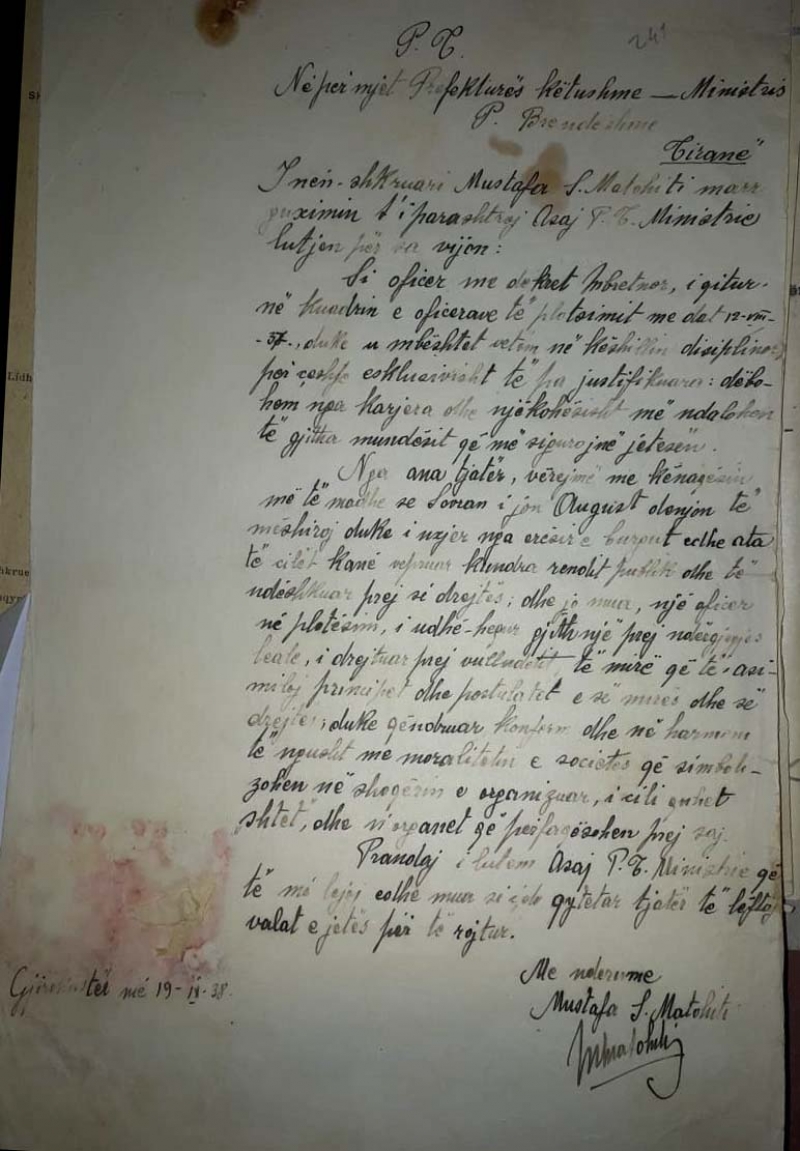 241
P. T.
Nëpërmjet Prefekturës këtushme — Ministris
P. Brendëshme
Tiranë"
I nën-shkruari Mustafa S. Matohiti marr
guximin t'i parashtroj Asaj P. T. Ministrie
lutjen për sa vijon:
Si oficer me dekret Mbretnor, i gitur-
në kuadrin e oficerave të plotsimit me dat 12-VIII-
-37-, duke u mbështet vetëm në këshillin disiplinor
për çeshtje esklusivisht të pa justifikuara: dëbo-
hem nga karjera dhe njëkohësisht më ndalohen
të gjitha mundësit që më sigurojnë jetesën.
Nga ana tjatër, vërejmë me kënaqësin
më të madhe se Sovran i jon August denjon të
mëshiroj duke i nxjer nga erësir'e burgut edhe ata
të cilët kanë vepruar kundra rendit publik dhe të
ndëshkuar prej së drejtës; dhe jo mua, një oficer
në plotësim, i udhë-hequr gjith një prej ndërgjegjes
leale, i drejtuar prej vullndetit të mirë që të asi-
miloj principet dhe postulatet e së mirës dhe së
drejtës, duke qëndruar konform dhe në harmoni
të ngusht me moralitetin e societes që simboli-
zohen në shoqërin e organizuar, i cili quhet
shtet, dhe n'organet që përfaqësohen prej saj.
Prandaj i lutem Asaj P. T. Ministrie që
të më lejoj edhe mua si çdo qytetar tjatër të luftoj
valat e jetës për të rojtur.
Me nderume
Gjirokastër më 19-II-38.
Mustafa S. Matohiti